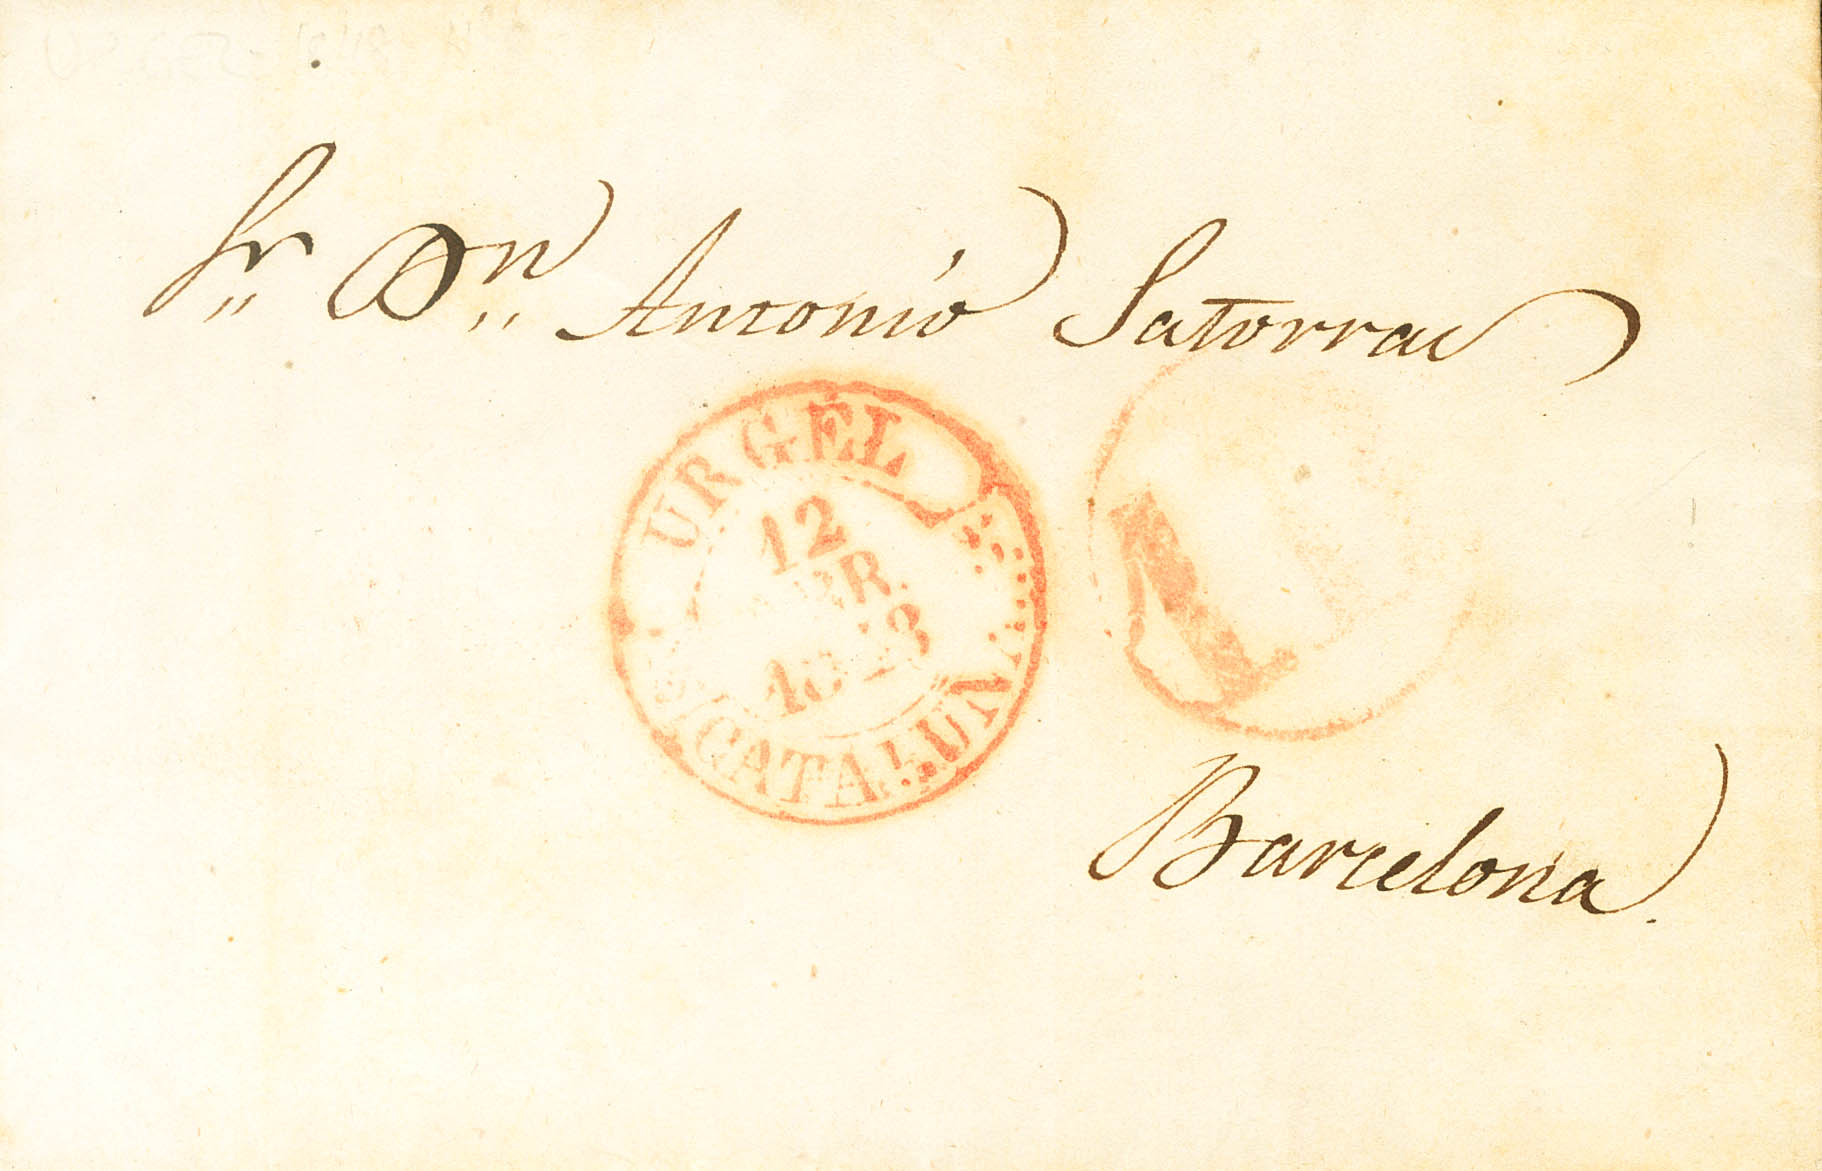 Sr. Dn. Antonio Satorras
URGEL
12
1843
CATALUÑA
Barcelona.